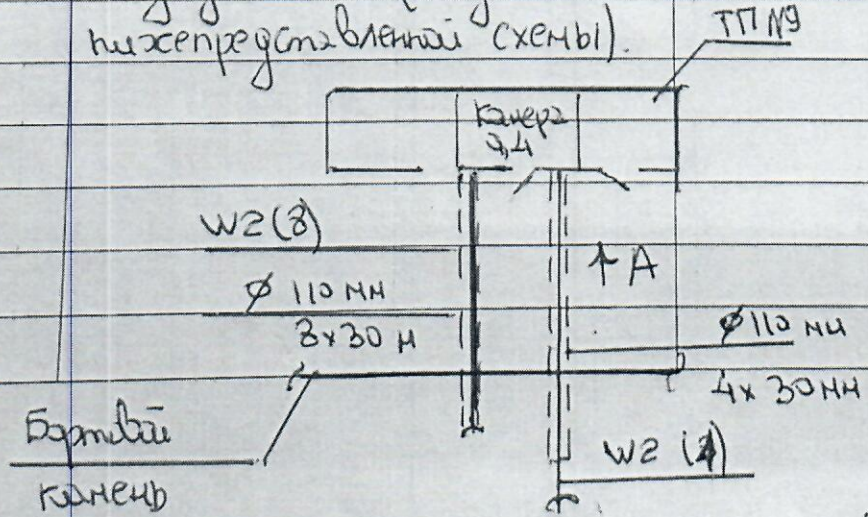 нижепредставленной схемы).
ТП №9
камера
0,4
W2 (8)
↑ А
ø 110 мм
8х30 м
ø 110 мм
4х30 мм
Бортовой
камень
W2 (4)